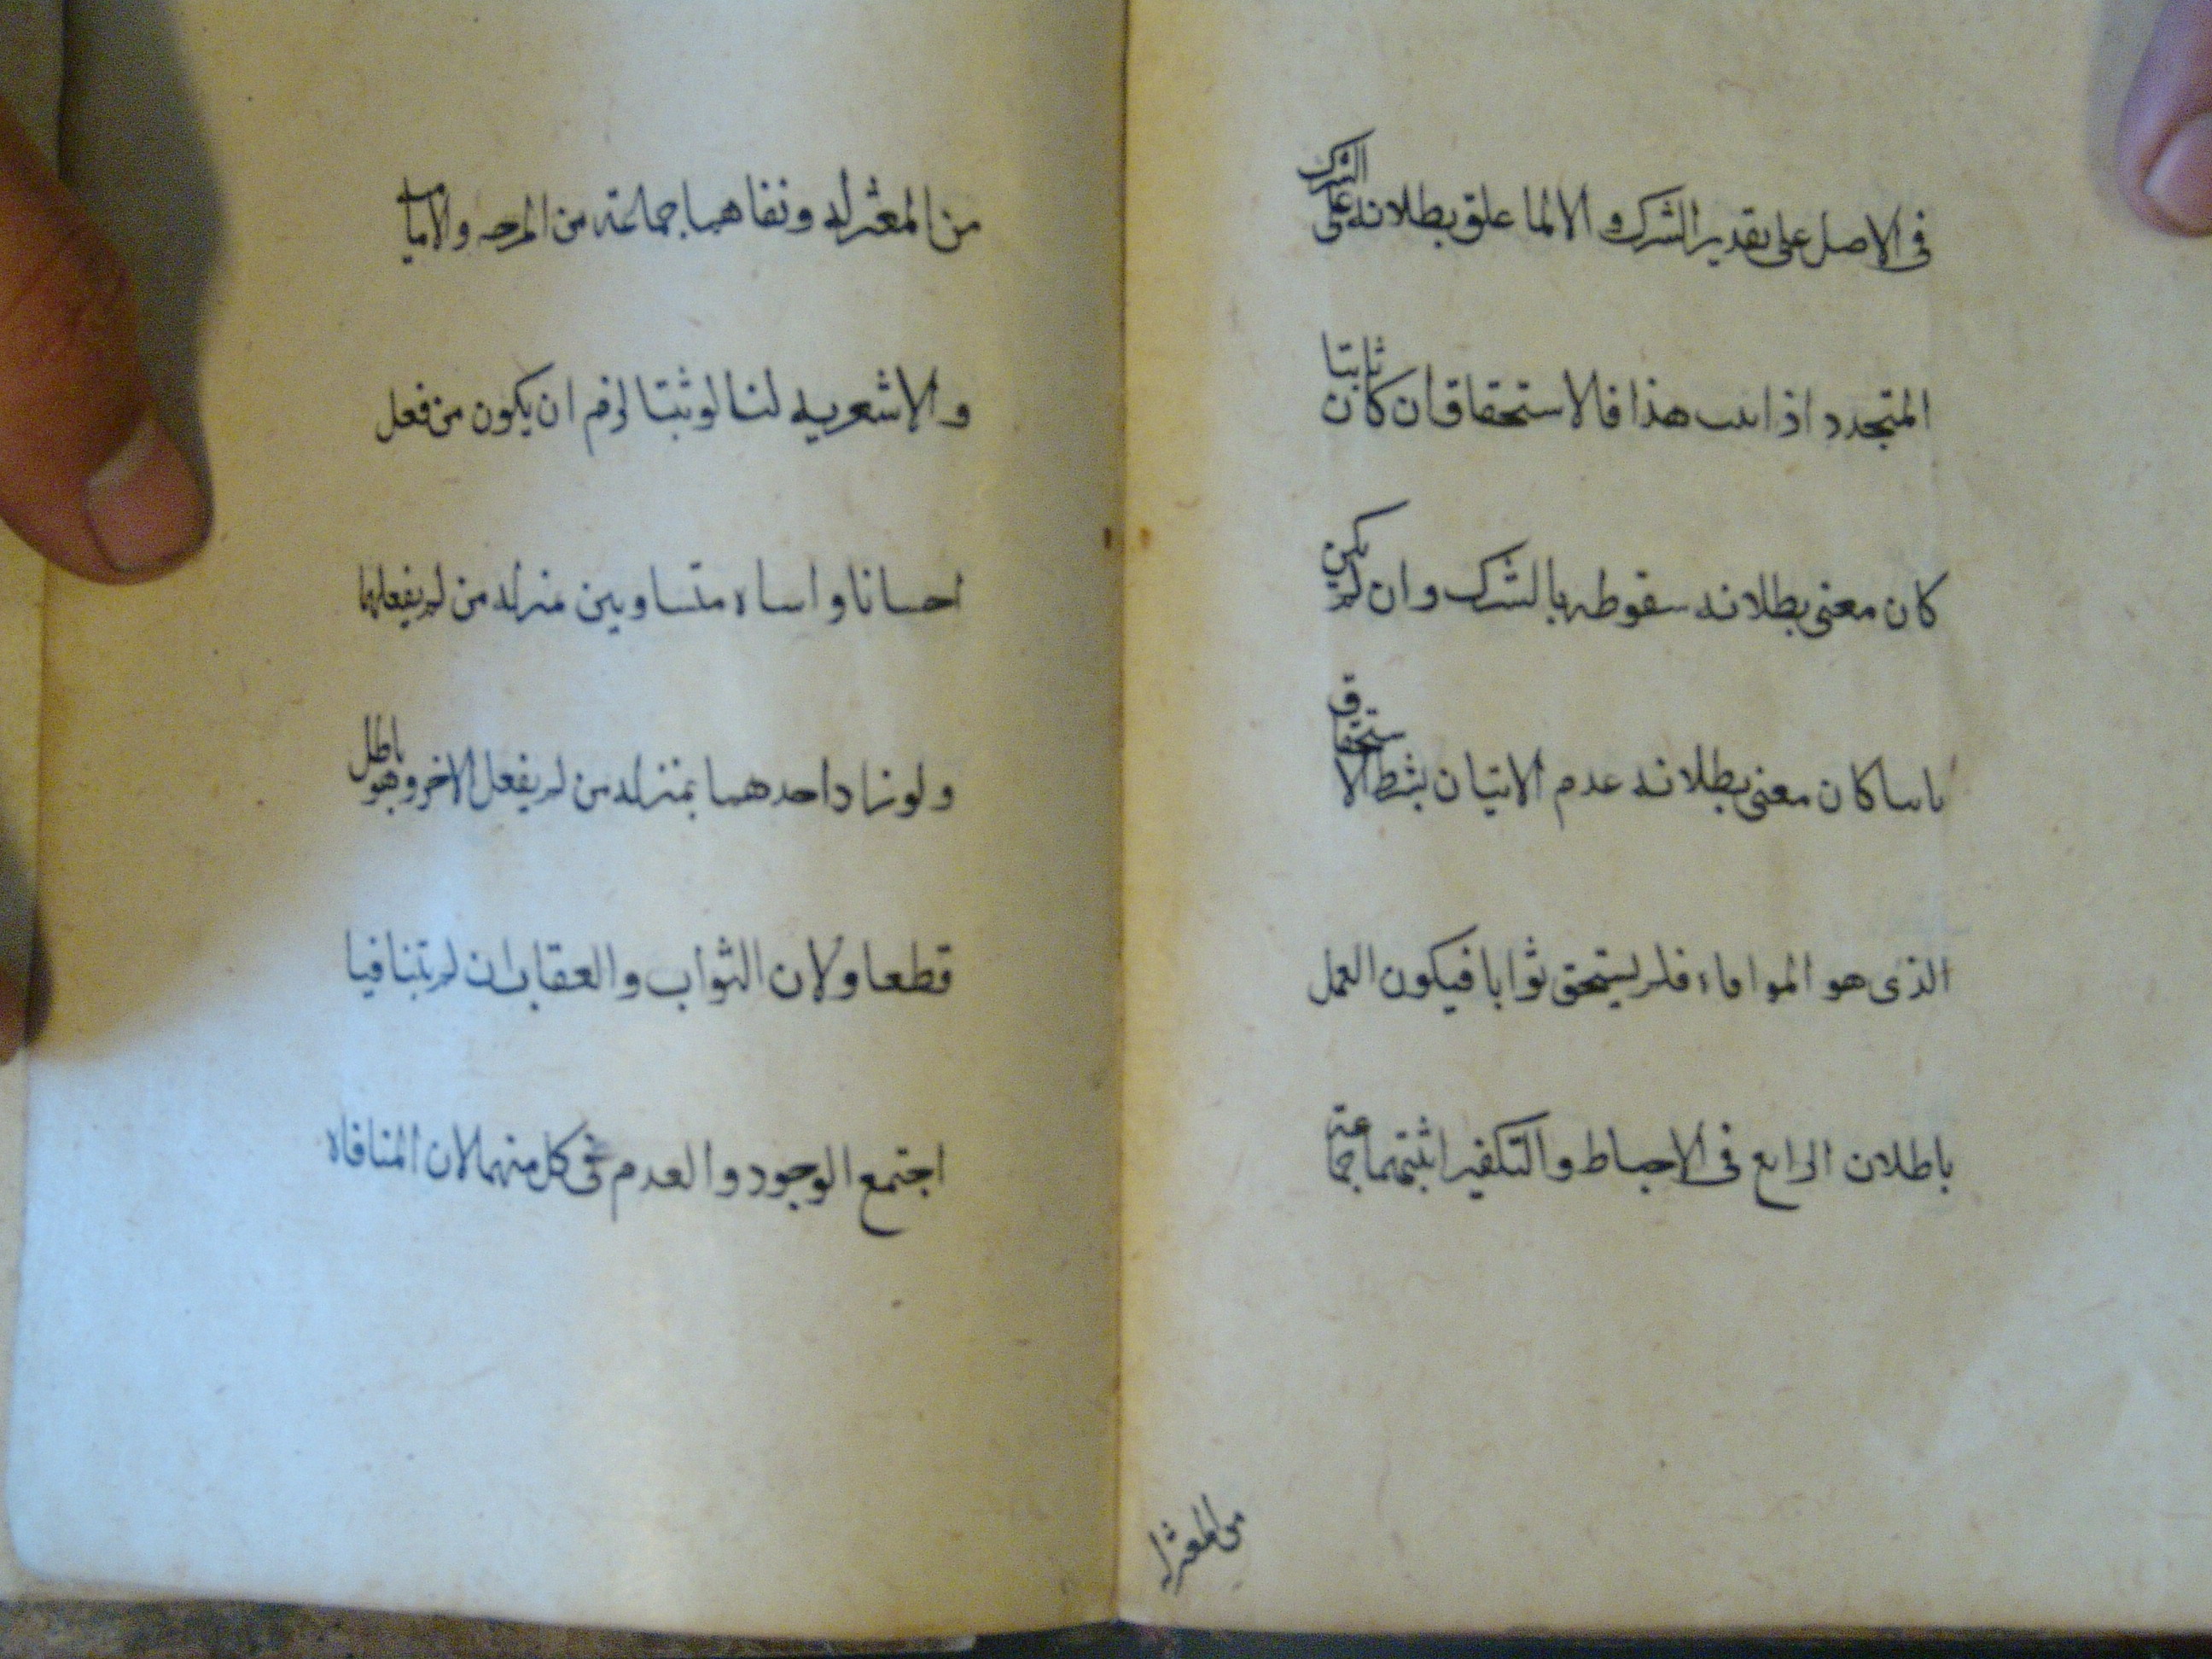 في الاصل على تقدير الشرك والا لما علق بطلانه على الشرك
المتجدد اذا ثبت هذا فالاستحقاق ان كان ثابتا
كان معنى بطلانه سقوطه بالشرك وان لم يكن
ثابتا كان معنى بطلانه عدم الاتيان بشرط الاستحقاق
الذى هو الموافاه فلم يستحق ثوابا فيكون العمل
باطلا ن الرابع في الاحباط والتكفير اثبتهما جماعة
من المعتزلـ
من المعتزله ونفاهما جماعة من المرجه والاماميه
والاشعريه لنا لو ثبتا لزم ان يكون من فعل
احسانا واساه متساويين منزله من لم يفعلهما
ولو زاد احدهما بمنزله من لم يفعل الاخر وهو باطل
قطعا ولان الثواب والعقاب ان لم يتنافيا
اجتمع الوجود والعدم في كل منهما لان المنافاه